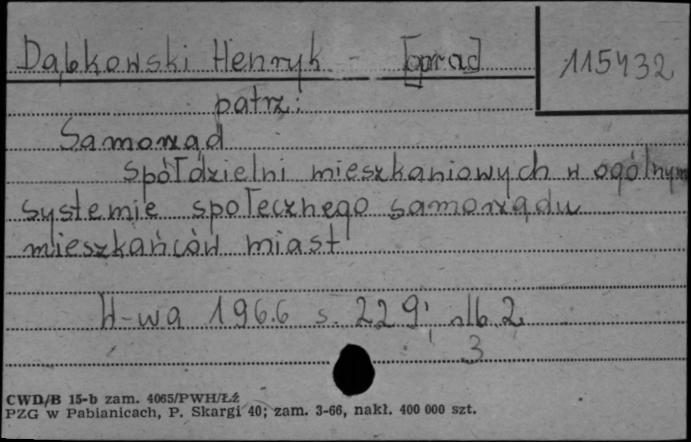 Dąbkowski Henryk - [oprac]
115432
patrz:
Samorząd
spółdzielni mieszkaniowych w ogólnym
systemie społecznego samorządu
mieszkańców miast
W-wa 1966 s. 229, nlb. 2
3
CWD/B 15-b zam. 4065/PWH/Łź
PZG w Pabianicach, P. Skargi 40; zam. 3-66, nakł. 400 000 szt.